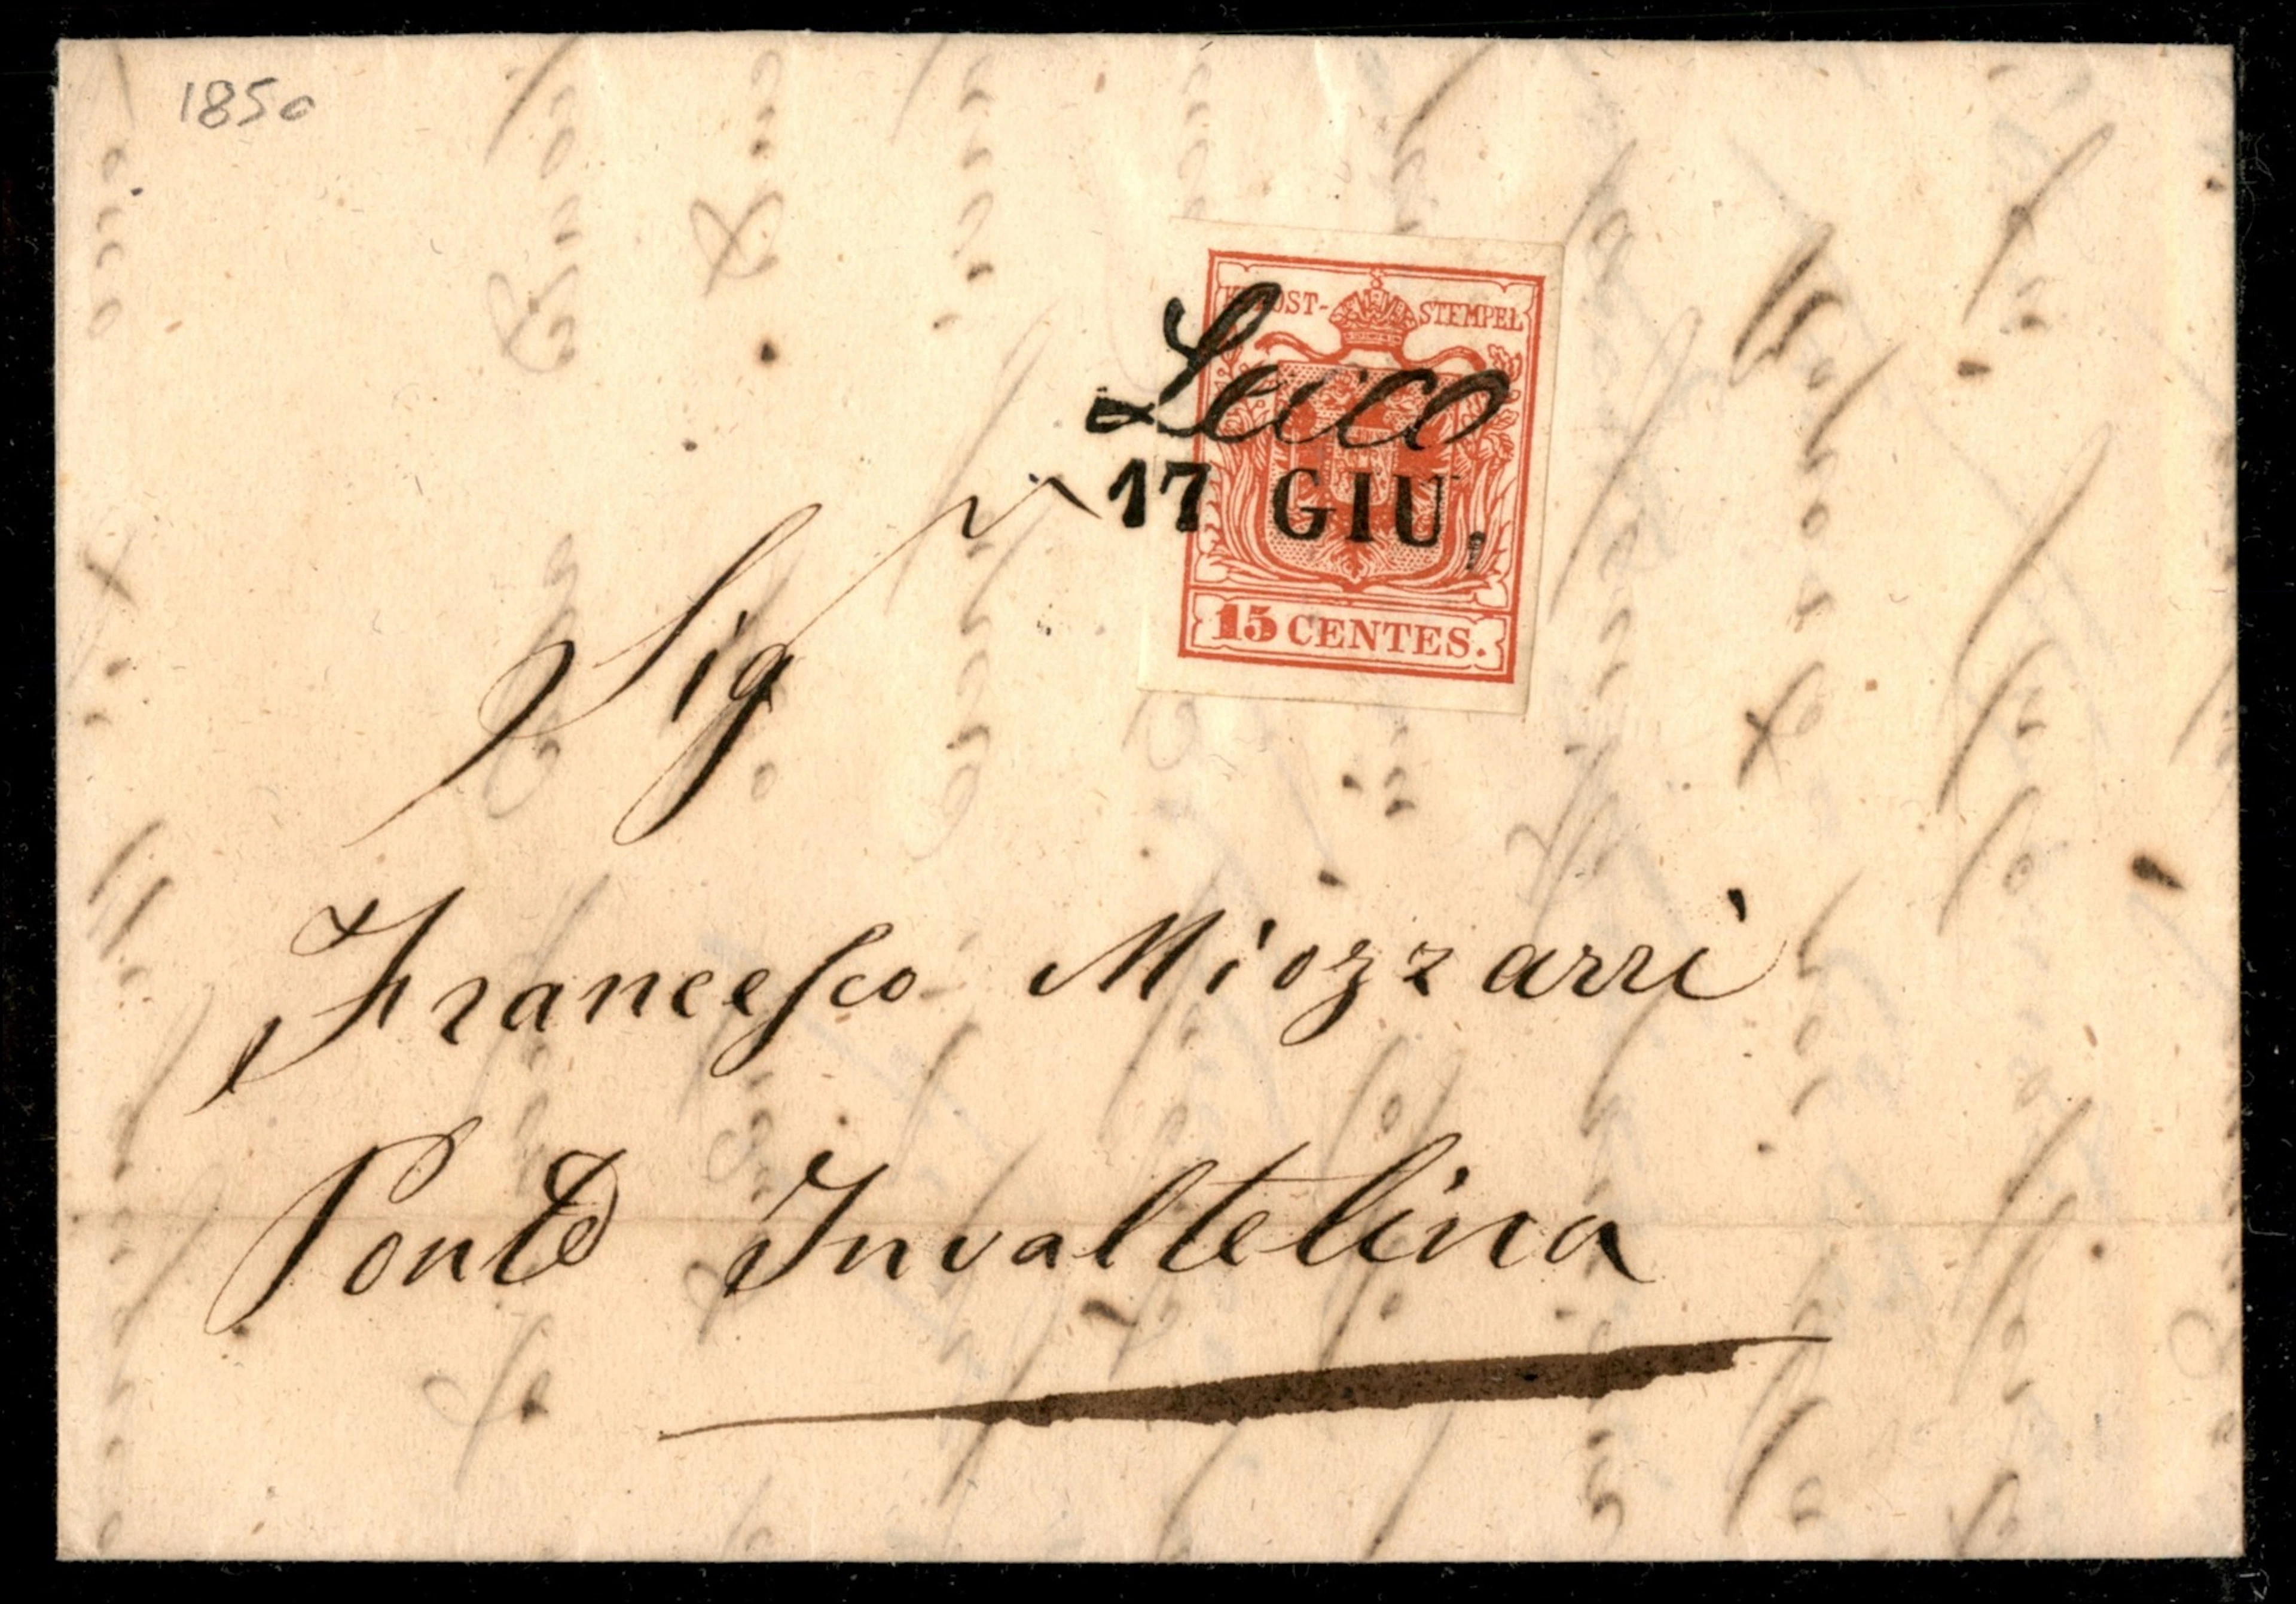 1850
POST-STEMPEL
Lecco
17 GIU,
15 CENTES.
Sig
Francesco Miozzarri
Ponte Invaltelina